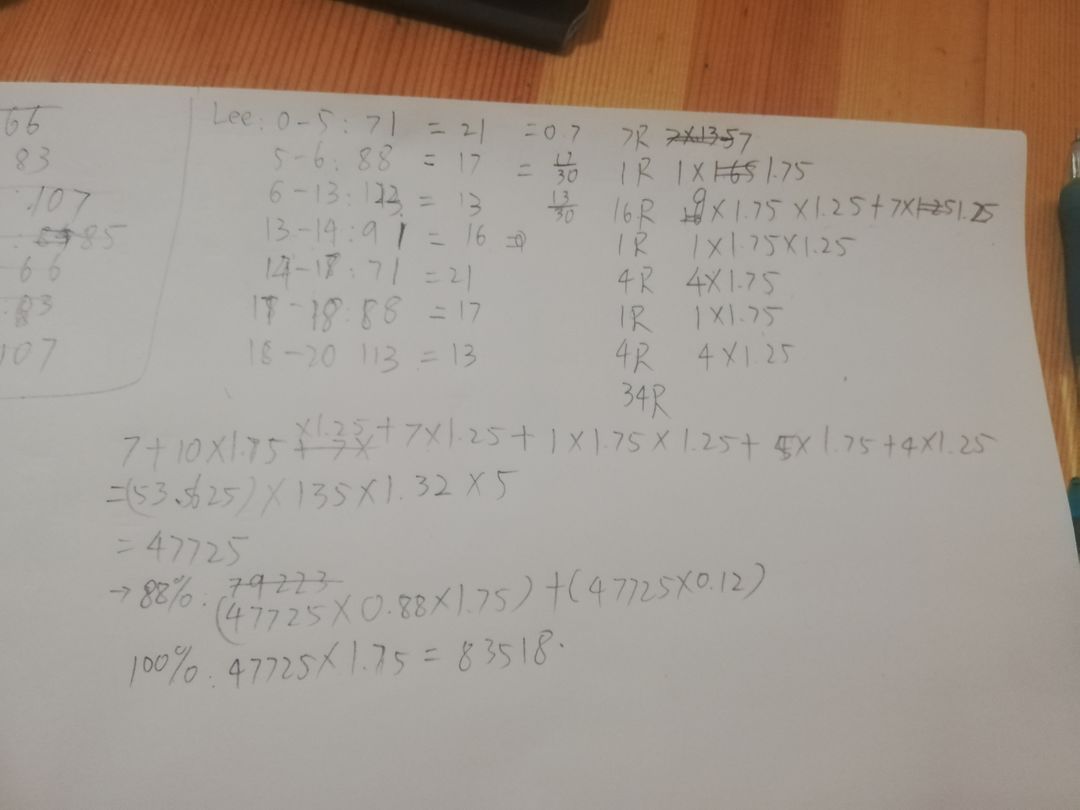 66
83
107
85
66
83
107
Lee: 0-5: 71 = 21 = 0.7 7R 7
5-6: 88 = 17 = 17/30 1R 1×1.75
6-13: 113 = 13 13/30 16R 9×1.75×1.25+7×1.25
13-14: 91 = 16 1R 1×1.75×1.25
14-18: 71 = 21 4R 4×1.75
18-18: 88 = 17 1R 1×1.75
18-20 113 = 13 4R 4×1.25
34R
7+10×1.75×1.25+7×1.25+1×1.75×1.25+5×1.75+4×1.25
=(53.5625)×135×1.32×5
=47725
→88%: 79223
(47725×0.88×1.75)+(47725×0.12)
100%: 47725×1.75=83518.